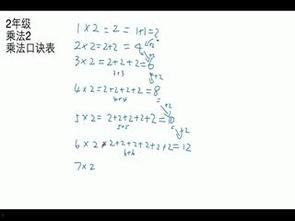 2年级
乘法2
乘法口诀表
1×2=2=1+1=2
2×2=2+2=4
+2
3×2=2+2+2=6
3+3
+2
4×2=2+2+2+2=8
4+4
+2
5×2=2+2+2+2+2=10
5+5
+2
6×2=2+2+2+2+2+2=12
6+6
7×2